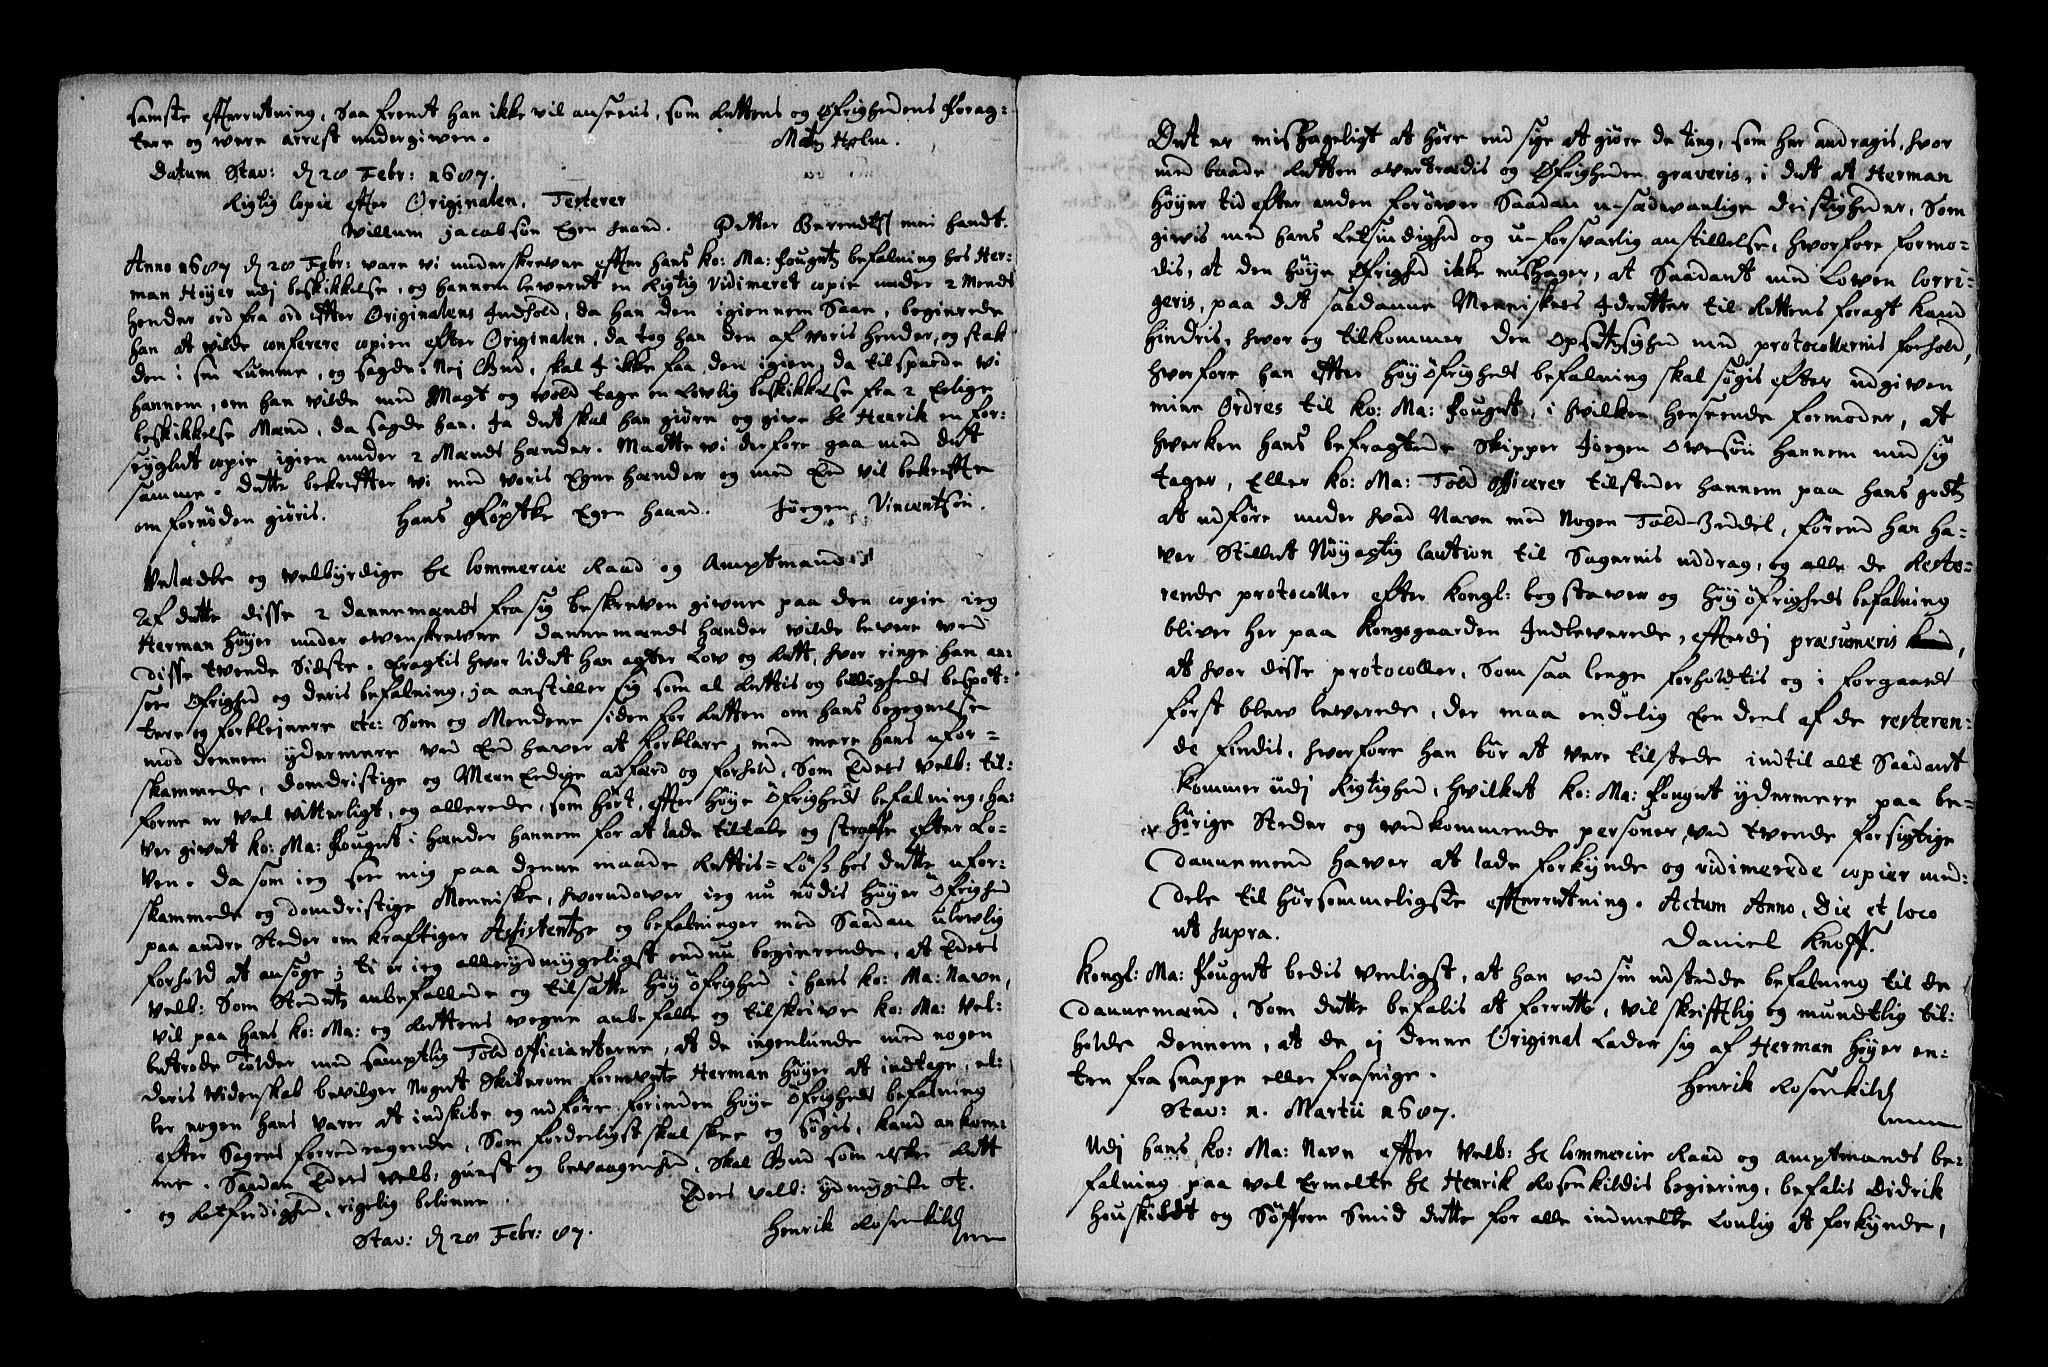 samste effterretning, Saa fremt han ikke vil ansees, som Rettens og Øfrighedens forag-
tere og were arrest undergiwen. Matz Holm.
Datum Stav: d 28 Febr: 1687.
Rigtig Copie efter Originalen, Testerer
Willum Jacobsøn Egen Haand. Petter Berendtss min handt.
Anno 1687 d 28 Febr: vare vi underskrevne effter hans Ko: Ma: fougetz befalning hos Her-
man Høyer udj beskikkelse, og hannem leweret en Rigtig Vidimeret copie under 2 Mends
hender ord fra ord effter Originalens Indhold, da han den igiennem Saae, begierede
han at wilde conferere copien efter Originalen, da tog han den af woris hender, og stak
den i sin Lumme, og sagde, Nej Gud, skal I ikke faa den igien, da tilspurde wi
hannem, om han wilde med Magt og wold tage en Lowlig beskikkelse fra 2 Erlige
beskikkelse Mænd, da sagde han, Ja det skal han giøre og give Hr Henrik en for-
seyglet copie igien under 2 Mænds Hænder. Maatte wi derfore gaa med dett
samme. Dette bekreffter wi med woris Egne hænder og med Eed wil bekreffte
om fornøden giøris. Hans Røpke Egen haand. Jørgen Vincentsøn.
Velædle og welbyrdige Hr Commercie Raad og Amptmand
Af dette disse 2 dannemænds fra sig beskrewen giwne paa den copie ieg
Herman Høyer under owenskrewne dannemænds hænder wilde lewere wed
disse twende Sidste. Eragtis hvor lidet han agter Low og Rett, hvor ringe han an-
seer Øfrighed og deris befalning, ja anstiller sig som al Rettis og billigheds bespot-
tere og forkleinere etc: Som og Mendene siden for Retten om hans begegnelse
mod dennem ydermere ved Eed haver at forklare, med mere hans ufor-
skammede, domdristige og Meen Eedige adfærd og forhold, Som Eders Velb: til-
forne er vel vitterligt, og allerede, som hørt, effter høye Øfrigheds befalning, ha-
ver givet Ko: Ma: fouget i hænder hannem for at lade tiltale og straffe efter Lo-
ven. Da som ieg seer mig paa denne maade Rettis-Løss hos dette ufor-
skammede og domdristige Menniske, hvorudower ieg nu nødis høyer Øfrighed
paa andre Steder om kraftiger Assistentze og befalninger mod Saadan ulowlig
forhold at ansøge; ti er ieg allerydmygeligst endnu begierende, at Eders
Velb: Som Stedets anbefallede og tilsatte Høy Øfrighed i hans Ko: Ma: Navn,
vil paa hans Ko: Ma: og Rettens vegne anbefalle og tilskrive Ko: Ma: Vel-
betrode Tolder med samptlig Told officianterne, at de ingenlunde med nogen
deris Videnskab bewilger Noget Skiberom fornevnte Herman Høyer at indtage, el-
ler nogen hans Varer at indskibe og udføre forinden Høye Øfrigheds befalning
efter Sagens forredragende, Som forderligst skal skee og søgis, kand ankom-
me. Saadan Eders velb: gunst og bewaagenhed, Skal Gud som elsker Rett
og Retferdighed, rigelig belønne. Eders velb: ydmygiste tr.
Stav: d 28 Febr: 87. Henrik Rosenkild
Det er mishageligt at høre end sige at giøre de ting, som her andragis, hvor
med baade Retten owertrædis og Øfrigheden graveris, i det at Herman
Høyer tid efter anden forøwer Saadan u-sædwanlige dristigheder, Som
giwis med hans Letsindighed og u-forsvarlig anstillelse, hworfore formo-
dis, at den høye Øfrighed ikke mishager, at Saadant med Lowen Corri-
geris, paa det saadanne Menniskers Idretter til Rettens foragt kand
hindris, hvor og tilkommer den Opsetzighed med protocollernis forhold,
hvorfore han effter Høy Øfrigheds befalning skal søgis efter udgiwen
mine Ordres til Ko: Ma: fouget, i hvilken henseende formoder, at
hwerken hans befragtede Skipper Jørgen Owesøn hannem med sig
tager, Eller Ko: Ma: Told officerer tilsteder hannem paa hans godtz
at udføre under hvad Navn med Nogen Told-Zeddel, førend han ha-
ver Stillet Nøyagtig Caution til Sagernis uddrag, og alle de Reste-
rende protocoller efter Kongl: bogstawer og Høy Øfrigheds befalning
bliver her paa Kongsgaarden Indlewerede, effterdj præsumeris,
at hvor disse protocoller, Som saa lenge forholdtis og i forgaards
først blew lewerede, der maa endelig Een deel af de resteren-
de findis, hvorfore han bør at være tilstede indtil alt Saadant
kommer udj Rigtighed, hwilket Ko: Ma: fouget ydermere paa be-
hørige Steder og wedkommende personer wed twende forsigtige
dannemend hawer at lade forkynde og vidimerede copier med-
dele til hørsommeligste effterretning. Actum Anno, Die et loco
ut supra. Daniel Knoff.
Kongl: Ma: fouget bedis venligst, at han wed sin udstedde befalning til de
dannemænd, Som dette befalis at forrette, vil skrifftlig og mundtlig til-
holde dennem, at de ej denne Original Lader sig af Herman Høyer en-
ten fra snappe eller frasnige. Henrik Rosenkild
Stav: 1. Martii 1687.
Udj Hans Ko: Ma: Navn effter Velb: Hr Commercie Raad og amptmands be-
falning paa vel Ermelte Hr Henrik Rosenkildis begiering, befalis Didrik
Houskildt og Søffren Smid dette for alle indmelte Lovlig at forkynde,